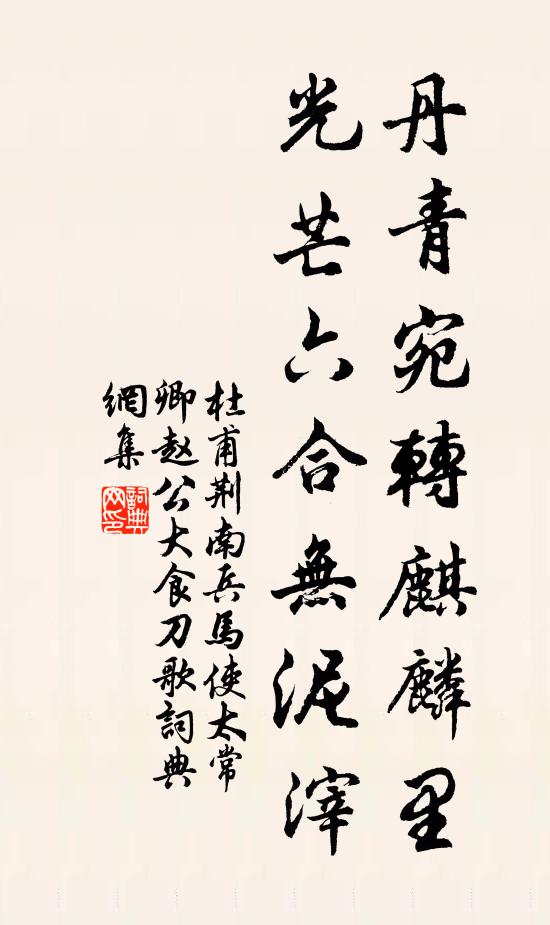 丹青宛轉麒麟里
光芒六合無泥滓
杜甫荆南兵馬使太常
卿赵公大食刀歌詞典
網集
詞典网印